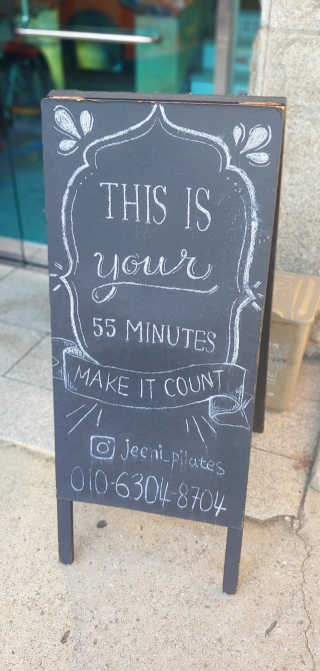 THIS IS
your
55 MINUTES
MAKE IT COUNT
jeeni_pilates
010-6304-8704